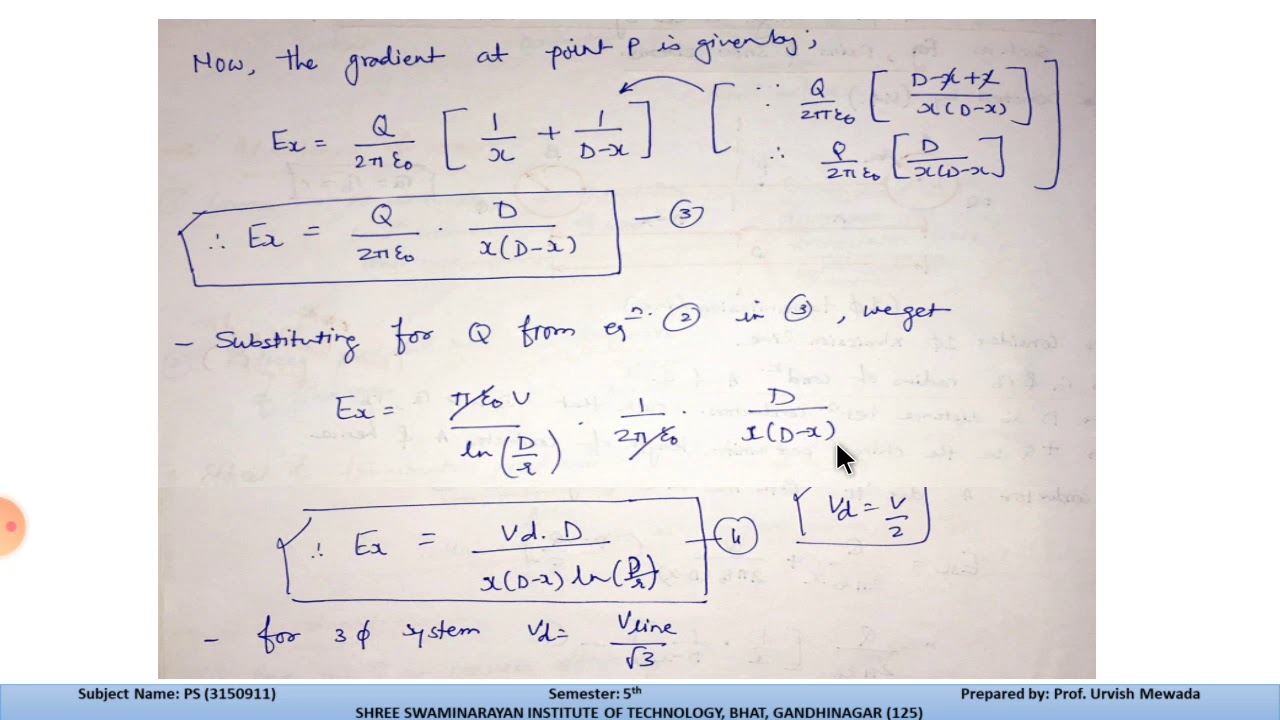 Now, the gradient at point P is given by;
Ex = Q/2πε₀ [ 1/x + 1/D-x ] [ ∵ Q/2πε₀ [ D-x+x / x(D-x) ]
∴ Q/2πε₀ [ D / x(D-x) ] ]
∴ Ex = Q/2πε₀ · D / x(D-x) — ③
- Substituting for Q from eqⁿ. ② in ③, we get
Ex = πε₀V / ln(D/r) · 1/2πε₀ · D / x(D-x)
∴ Ex = Vd. D / x(D-x) ln(D/r) — ④ [ Vd = V/2 ]
- for 3ϕ system Vd = Vline/√3
Subject Name: PS (3150911) Semester: 5th Prepared by: Prof. Urvish Mewada
SHREE SWAMINARAYAN INSTITUTE OF TECHNOLOGY, BHAT, GANDHINAGAR (125)